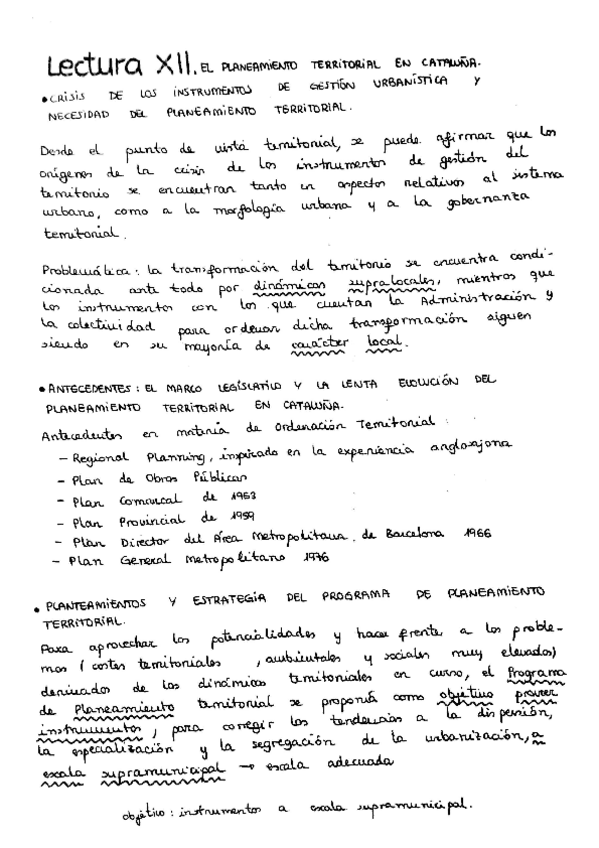 Lectura XII. EL PLANEAMIENTO TERRITORIAL EN CATALUÑA.
• CRISIS DE LOS INSTRUMENTOS DE GESTIÓN URBANÍSTICA Y
NECESIDAD DEL PLANEAMIENTO TERRITORIAL.
Desde el punto de vista territorial, se puede afirmar que los
orígenes de la crisis de los instrumentos de gestión del
territorio se encuentran tanto en aspectos relativos al sistema
urbano, como a la morfología urbana y a la gobernanza
territorial.
Problemática: la transformación del territorio se encuentra condi-
cionada ante todo por dinámicas supralocales, mientras que
los instrumentos con los que cuentan la Administración y
la colectividad para ordenar dicha transformación siguen
siendo en su mayoría de carácter local.
• ANTECEDENTES: EL MARCO LEGISLATIVO Y LA LENTA EVOLUCIÓN DEL
PLANEAMIENTO TERRITORIAL EN CATALUÑA.
Antecedentes en materia de Ordenación Territorial:
- Regional Planning, inspirado en la experiencia anglosajona
- Plan de Obras Públicas
- Plan Comarcal de 1953
- Plan Provincial de 1959
- Plan Director del Área Metropolitana de Barcelona 1966
- Plan General Metropolitano 1976
• PLANTEAMIENTOS Y ESTRATEGIA DEL PROGRAMA DE PLANEAMIENTO
TERRITORIAL.
Para aprovechar las potencialidades y hacer frente a los proble-
mas (costes territoriales, ambientales y sociales muy elevados)
derivados de las dinámicas territoriales en curso, el Programa
de Planeamiento territorial se proponía como objetivo proveer
instrumentos, para corregir las tendencias a la dispersión,
la especialización y la segregación de la urbanización, a
escala supramunicipal → escala adecuada
objetivo: instrumentos a escala supramunicipal.